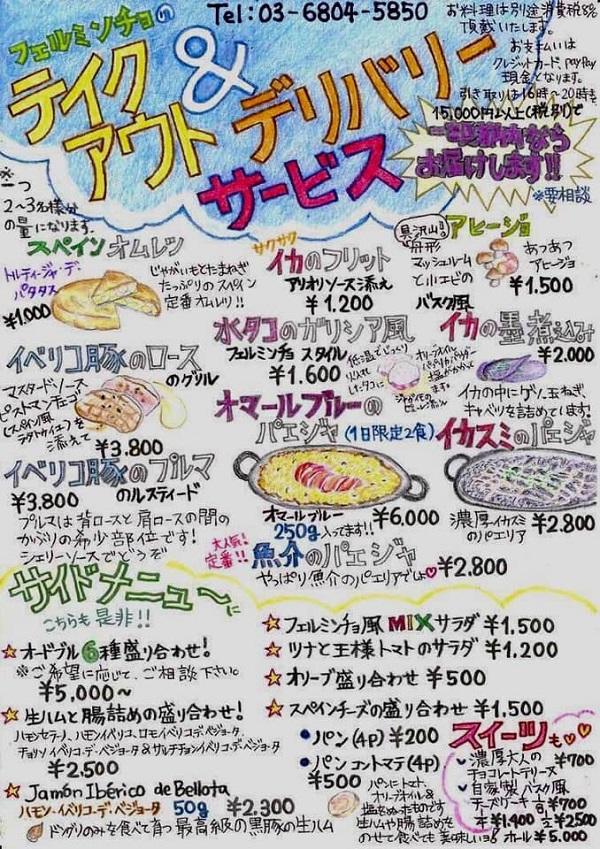 Tel:03-6804-5850
フェルミンチョの
テイクアウト&デリバリーサービス
お料理は別途消費税8%
頂戴いたします。
お支払いは
クレジットカード、PayPay
現金となります。
引き取りは16時~20時まで
15,000円以上(税別)で
一部都内なら
お届けします!!
※要相談
※一つ
2~3名様分
の量になります。
スペインオムレツ
トルティージャ・デ・
パタタス
¥1.000
じゃがいもとたまねぎ
たっぷりのスペイン
定番オムレツ!!
サクサク
イカのフリット
アリオリソース添え
¥1.200
具沢山!
アヒージョ
舟形
マッシュルーム
と小エビの
バスク風
あつあつ
アヒージョ
¥1.500
水タコのガリシア風
フェルミンチョ スタイル
¥1.600
低温でじっくり
イカの墨煮込み
¥2.000
イカの中にゲソ、玉ねぎ、
キャベツを詰めてます!
イベリコ豚のロース
のグリル
マスタードソース
ピストマンチェゴ
(スペイン風
ラタトゥイユ)を
添えて
¥3.800
オマールブルーの
パエジャ(1日限定2食)
オマールブルー
250g入ってます!!
¥6.000
イカスミのパエジャ
濃厚イカスミ
のパエリア
¥2.800
イベリコ豚のプルマ
¥3.800
のルスティード
プルマは背ロースと肩ロースの間の
かぶりの希少部位です!
シェリーソースでどうぞ
大人気!
定番!!
魚介のパエジャ
やっぱり魚介のパエリアでしょ♡
¥2.800
サイドメニュ~に
こちらも是非!!
☆オードブル6種盛り合わせ!
※ご希望に応じて、ご相談下さい。
¥5,000~
☆生ハムと腸詰めの盛り合わせ!
ハモンセラーノ、ハモンイベリコ、ロモイベリコ・デ・ベジョータ、
チョリソイベリコ・デ・ベジョータ&サルチチョンイベリコ・デ・ベジョータ
¥2.500
☆Jamón Ibérico de Bellota
ハモン・イベリコ・デ・ベジョータ 50g ¥2,300
ドングリのみを食べて育つ最高級の黒豚の生ハム
☆フェルミンチョ風MIXサラダ ¥1.500
☆ツナと王様トマトのサラダ ¥1.200
☆オリーブ盛り合わせ ¥500
☆スペインチーズの盛り合わせ ¥1,500
・パン(4P) ¥200
・パンコントマテ(4P)
¥500
パンにトマト、
オリーブオイル&
塩をぬったものです
生ハムや腸詰めを
のせて食べても美味しいヨ!
スイーツも♡♡
濃厚大人の
チョコレートテリーヌ
¥700
自家製バスク風
チーズケーキ
¥700
¥1.400
¥2500
ホール¥5.000